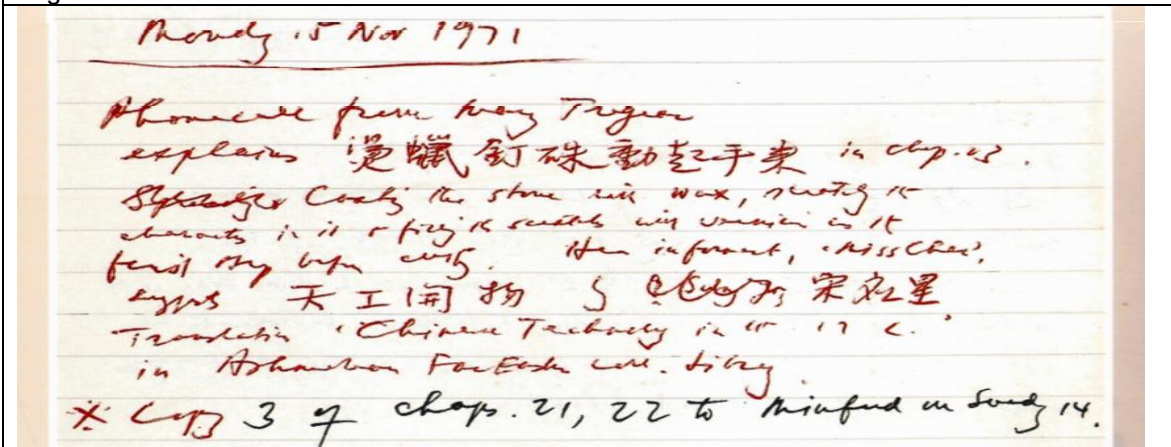 Monday 15 Nov 1971
Phonecall from Mary Tregear
explains 燙蠟釘硃動起手來 in chap. 23.
Coating the stone with wax, scratching the
characters in it & filling the scratches with vermilion as the
first step before cutting. Her informant, 'Miss Chen',
suggests 天工開物 by 宋应星
Translation 'Chinese Technology in the 17 C.'
in Ashmolean Far Eastern coll. library
* Copy 3 of chaps. 21, 22 to Minford on Sunday 14.